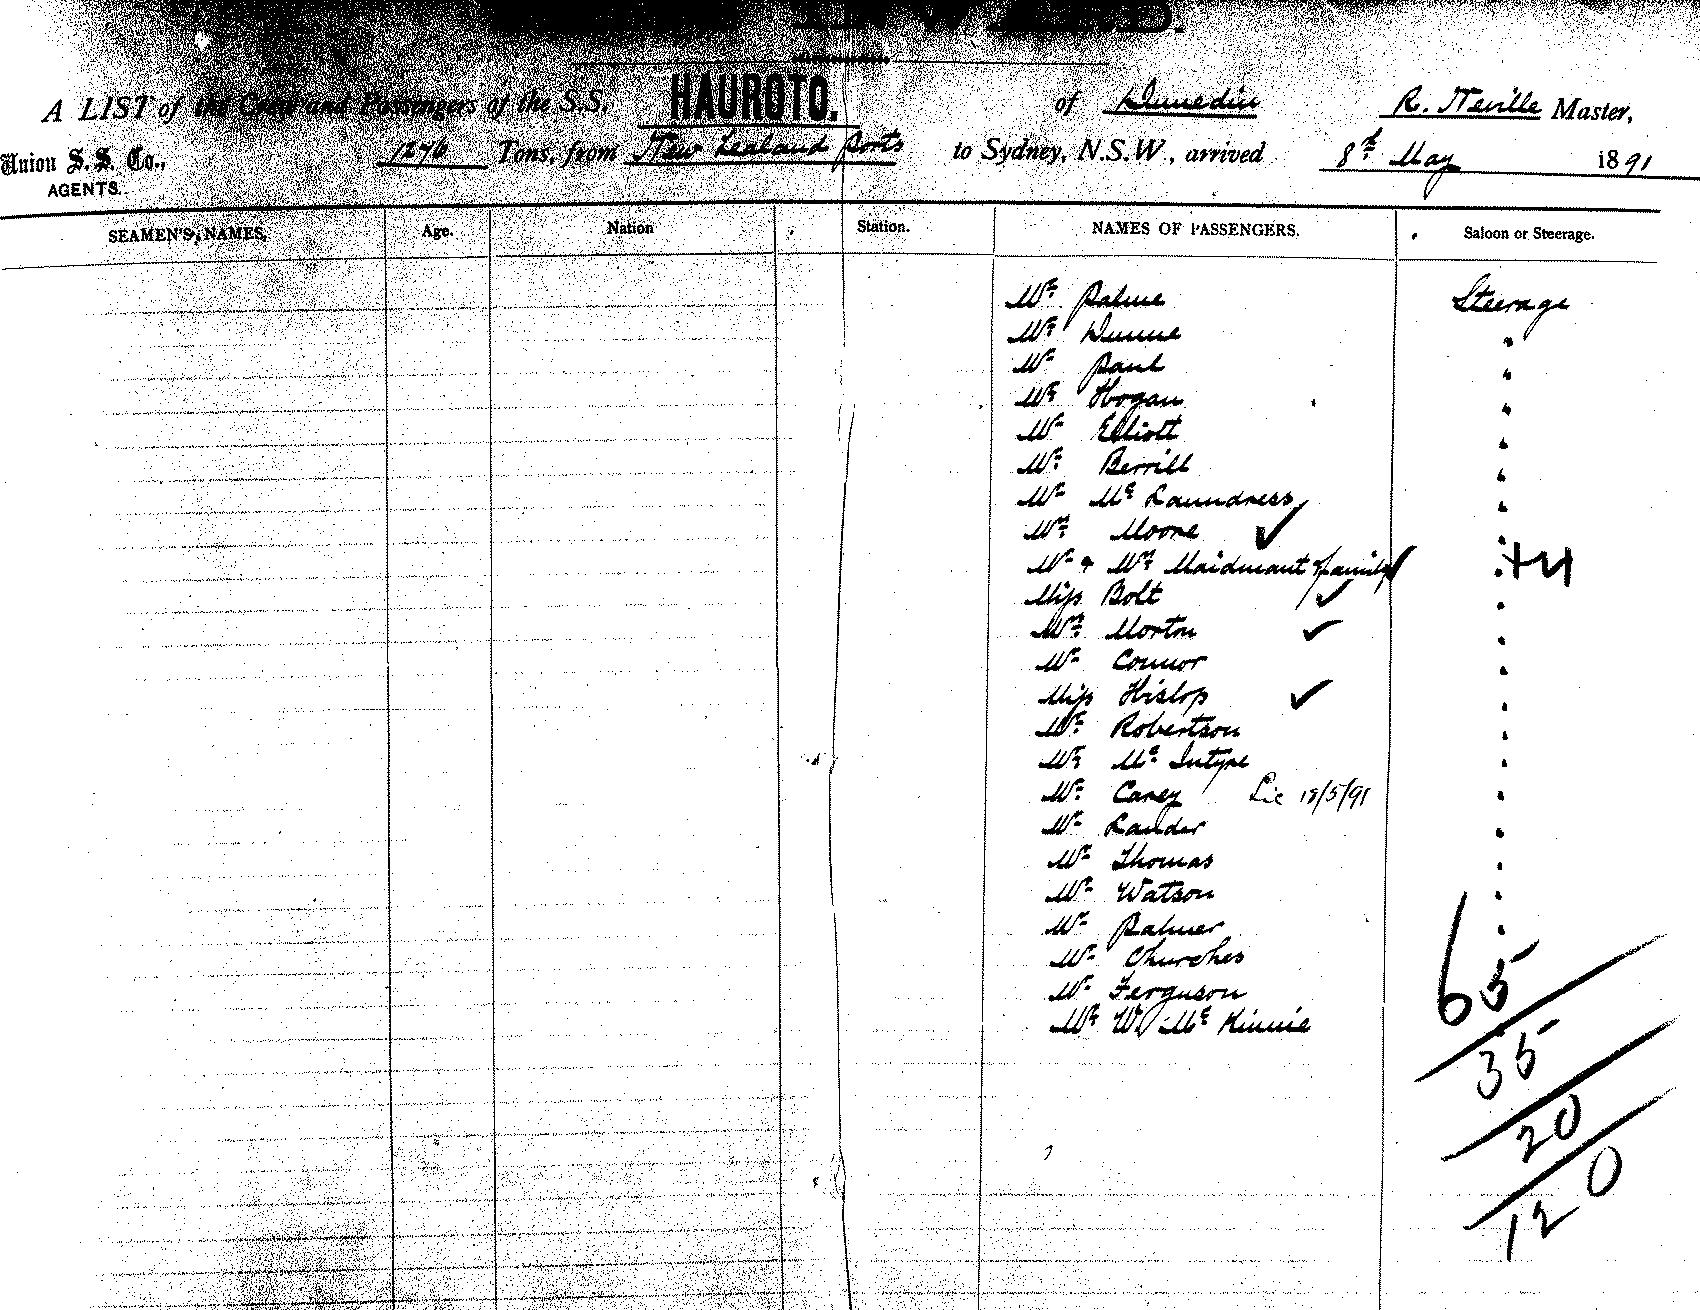 A LIST of the Crew and Passengers of the S.S. HAUROTO. of Dunedin R. Neville Master,
Union S.S. Co., AGENTS. 1276 Tons, from New Zealand ports to Sydney, N.S.W., arrived 8th May 1891
SEAMEN'S NAMES. Age. Nation Station. NAMES OF PASSENGERS. Saloon or Steerage.
Mr. Palme Steerage
Mr. Dunne "
Mr Paul "
Mr. Hogan "
Mr Elliott "
Mr. Berrill "
Mr Mc Laundress "
Mrs. Moore ✓ "
Mr & Mrs. Maidmant & family ✓ " +4
Miss Bolt ✓ "
Mrs. Morton ✓ "
Mr Connor "
Miss Hislop ✓ "
Mr. Robertson "
Mr. Mc Intyre "
Mr. Carey Lic 18/5/91 "
Mr Lander "
Mr Thomas "
Mr Watson "
Mr Palmer "
Mr Churches
Mr Ferguson
Mr. W. Mc Kinnie
65
35
20
120